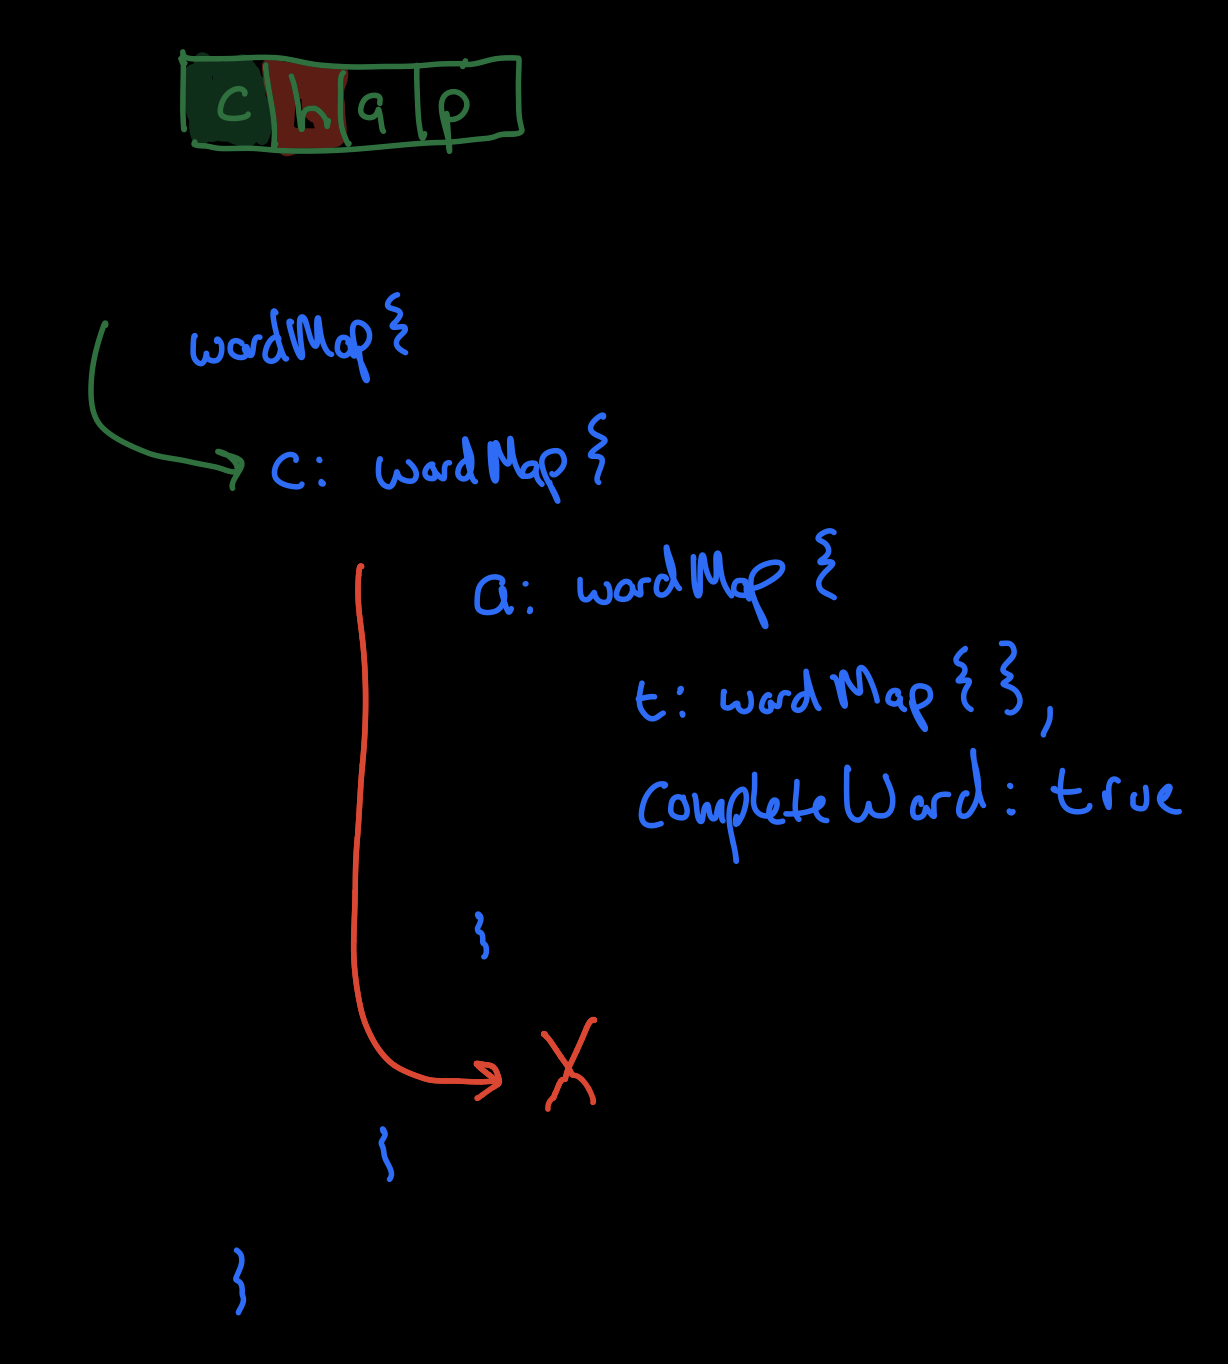 c h a p
wordMap{
c: wordMap{
a: wordMap{
t: wordMap{},
completeWord: true
}
X
}
}